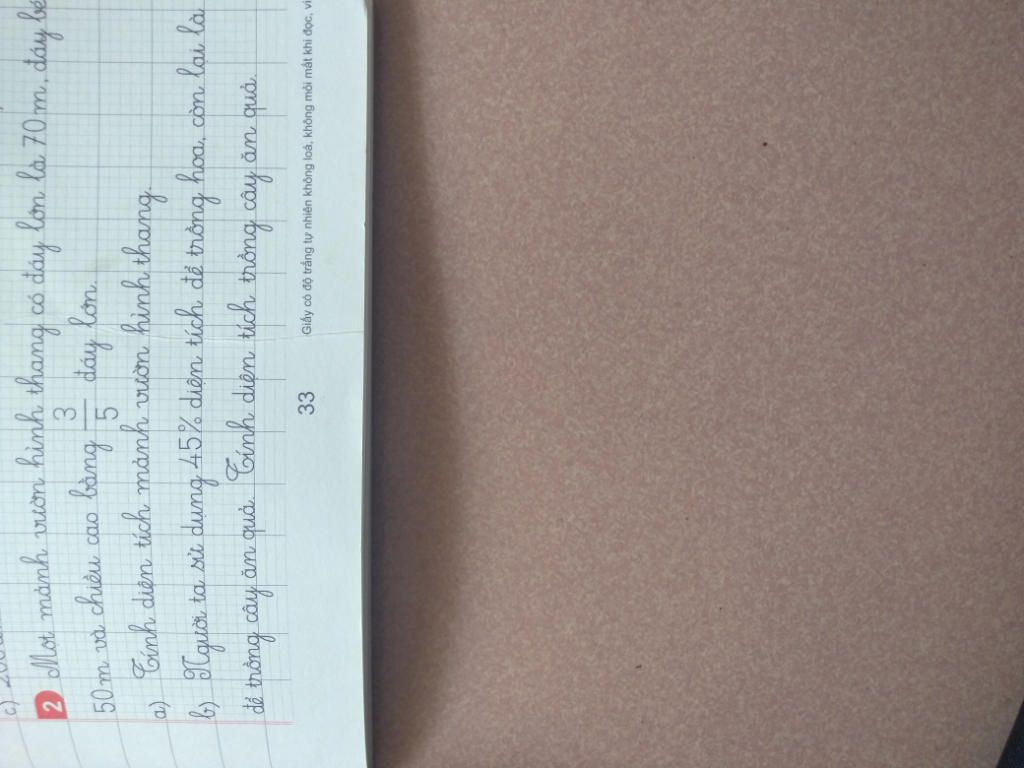 c)
2 Một mảnh vườn hình thang có đáy lớn là 70m, đáy bé
50m và chiều cao bằng 3/5 đáy lớn.
a) Tính diện tích mảnh vườn hình thang.
b) Người ta sử dụng 45% diện tích để trồng hoa, còn lại là
để trồng cây ăn quả. Tính diện tích trồng cây ăn quả.
33
Giấy có độ trắng tự nhiên không loá, không mỏi mắt khi đọc, vi